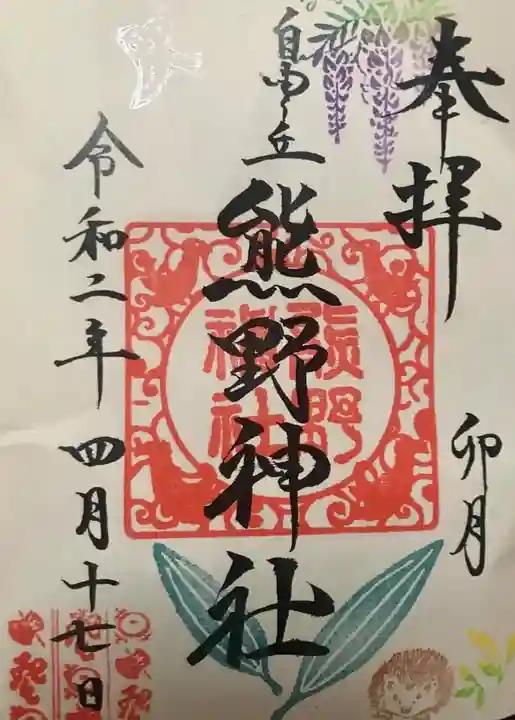 奉拝
卯月
自由ヶ丘
熊野神社
令和二年四月十七日